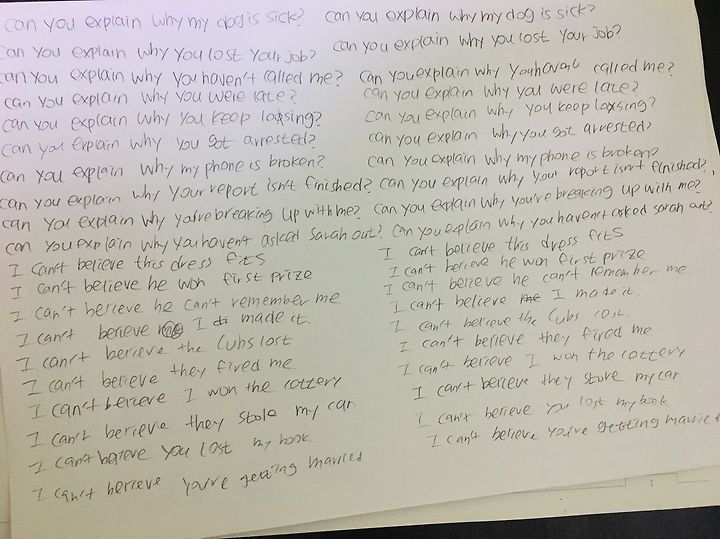 can you explain why my dog is sick? can you explain why my dog is sick?
can you explain why you lost your job? can you explain why you lost your job?
can you explain why you haven't called me? can you explain why you haven't called me?
can you explain why you were late? can you explain why you were late?
can you explain why you keep loosing? can you explain why you keep loosing?
can you explain why you got arrested? can you explain why you got arrested?
can you explain why my phone is broken? can you explain why my phone is broken?
can you explain why your report isn't finished? can you explain why your report isn't finished?
can you explain why you're breaking up with me? can you explain why you're breaking up with me?
can you explain why you haven't asked sarah out? can you explain why you haven't asked sarah out?
I can't believe this dress fits I can't believe this dress fits
I can't believe he won first prize I can't believe he won first prize
I can't believe he can't remember me I can't believe he can't remember me
I can't believe I made it. I can't believe I made it.
I can't believe the Cubs lost. I can't believe the Cubs lost.
I can't believe they fired me I can't believe they fired me
I can't believe I won the lottery I can't believe I won the lottery
I can't believe they stole my car I can't believe they stole my car
I can't believe you lost my book I can't believe you lost my book
I can't believe you're getting married I can't believe you're getting married